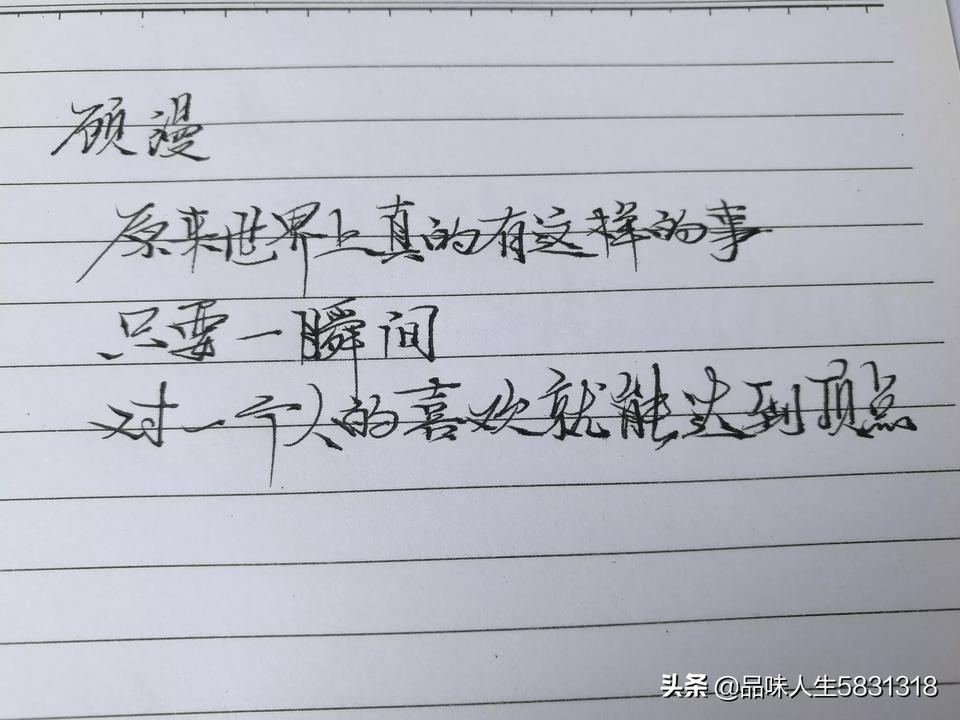 顾漫
原来世界上真的有这样的事
只要一瞬间
对一个人的喜欢就能达到顶点
头条 @品味人生5831318